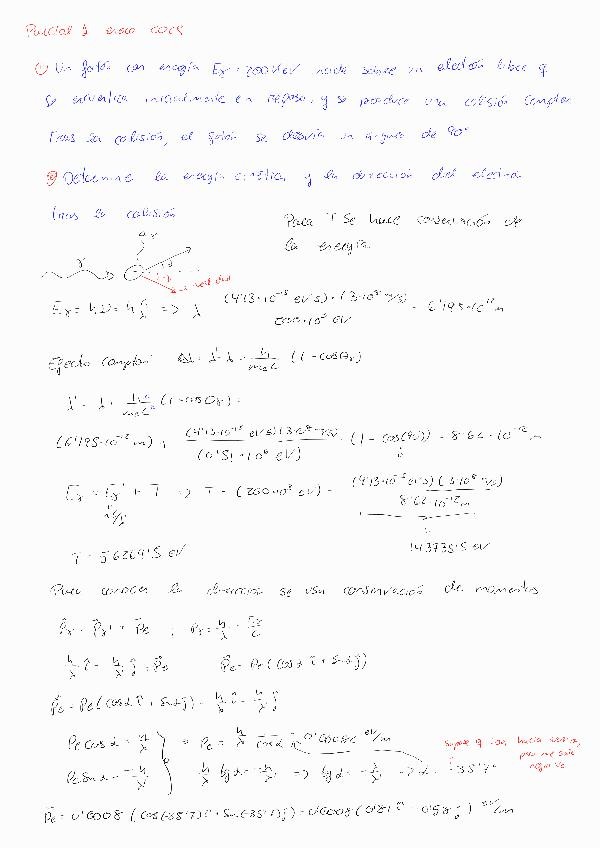 Parcial 1 enero
① Un fotón con energía Eγ = 200 KeV incide sobre un electrón libre q
se encuentra inicialmente en reposo, y se produce una colisión compton
Tras la colisión, el fotón se desvía un ángulo de 90°
ⓐ Determine la energía cinética y la dirección del electrón
tras la colisión
Para T se hace conservación de
la energía
γ
Eγ = hν = h c/λ => λ (4'13·10^-15 eV s)·(3·10^8 m/s) / 200·10^3 eV = 6'195·10^-12 m
Efecto compton: Δλ = λ' - λ = h/(m_e c) (1 - cosθγ)
λ' = λ + hc/(m_e c²) (1 - cosθγ) =
(6'195·10^-12 m) + (4'13·10^-15 eV s)(3·10^8 m/s) / (0'51·10^6 eV) (1 - cos(90)) = 8'62·10^-12 m
Eγ = Eγ' + T => T = (200·10^3 eV) - (4'13·10^-15 eV s)(3·10^8 m/s) / 8'62·10^-12 m
hc/λ'
143735'5 eV
T = 56264'5 eV
Para conocer la dirección se usa conservación de momentos
P⃗γ = P⃗γ' + P⃗e ; Pγ = h/λ = Eγ/c
h/λ î - h/λ' ĵ = P⃗e P⃗e = Pe (cosα î + sinα ĵ)
P⃗e = Pe (cosα î + sinα ĵ) = h/λ î - h/λ' ĵ
Pe cosα = h/λ
Pe sinα = -h/λ'
Pe = h/λ 1/cosα = 0'0008 eV/m
h/λ tgα = -h/λ' => tgα = -λ/λ' => α = -35'7°
supuse q iba hacia arriba,
pero me sale
negativo
P⃗e = 0'0008 (cos(-35'7) î + sin(-35'7) ĵ) = 0'0008 (0'81 î - 0'58 ĵ) eV/m